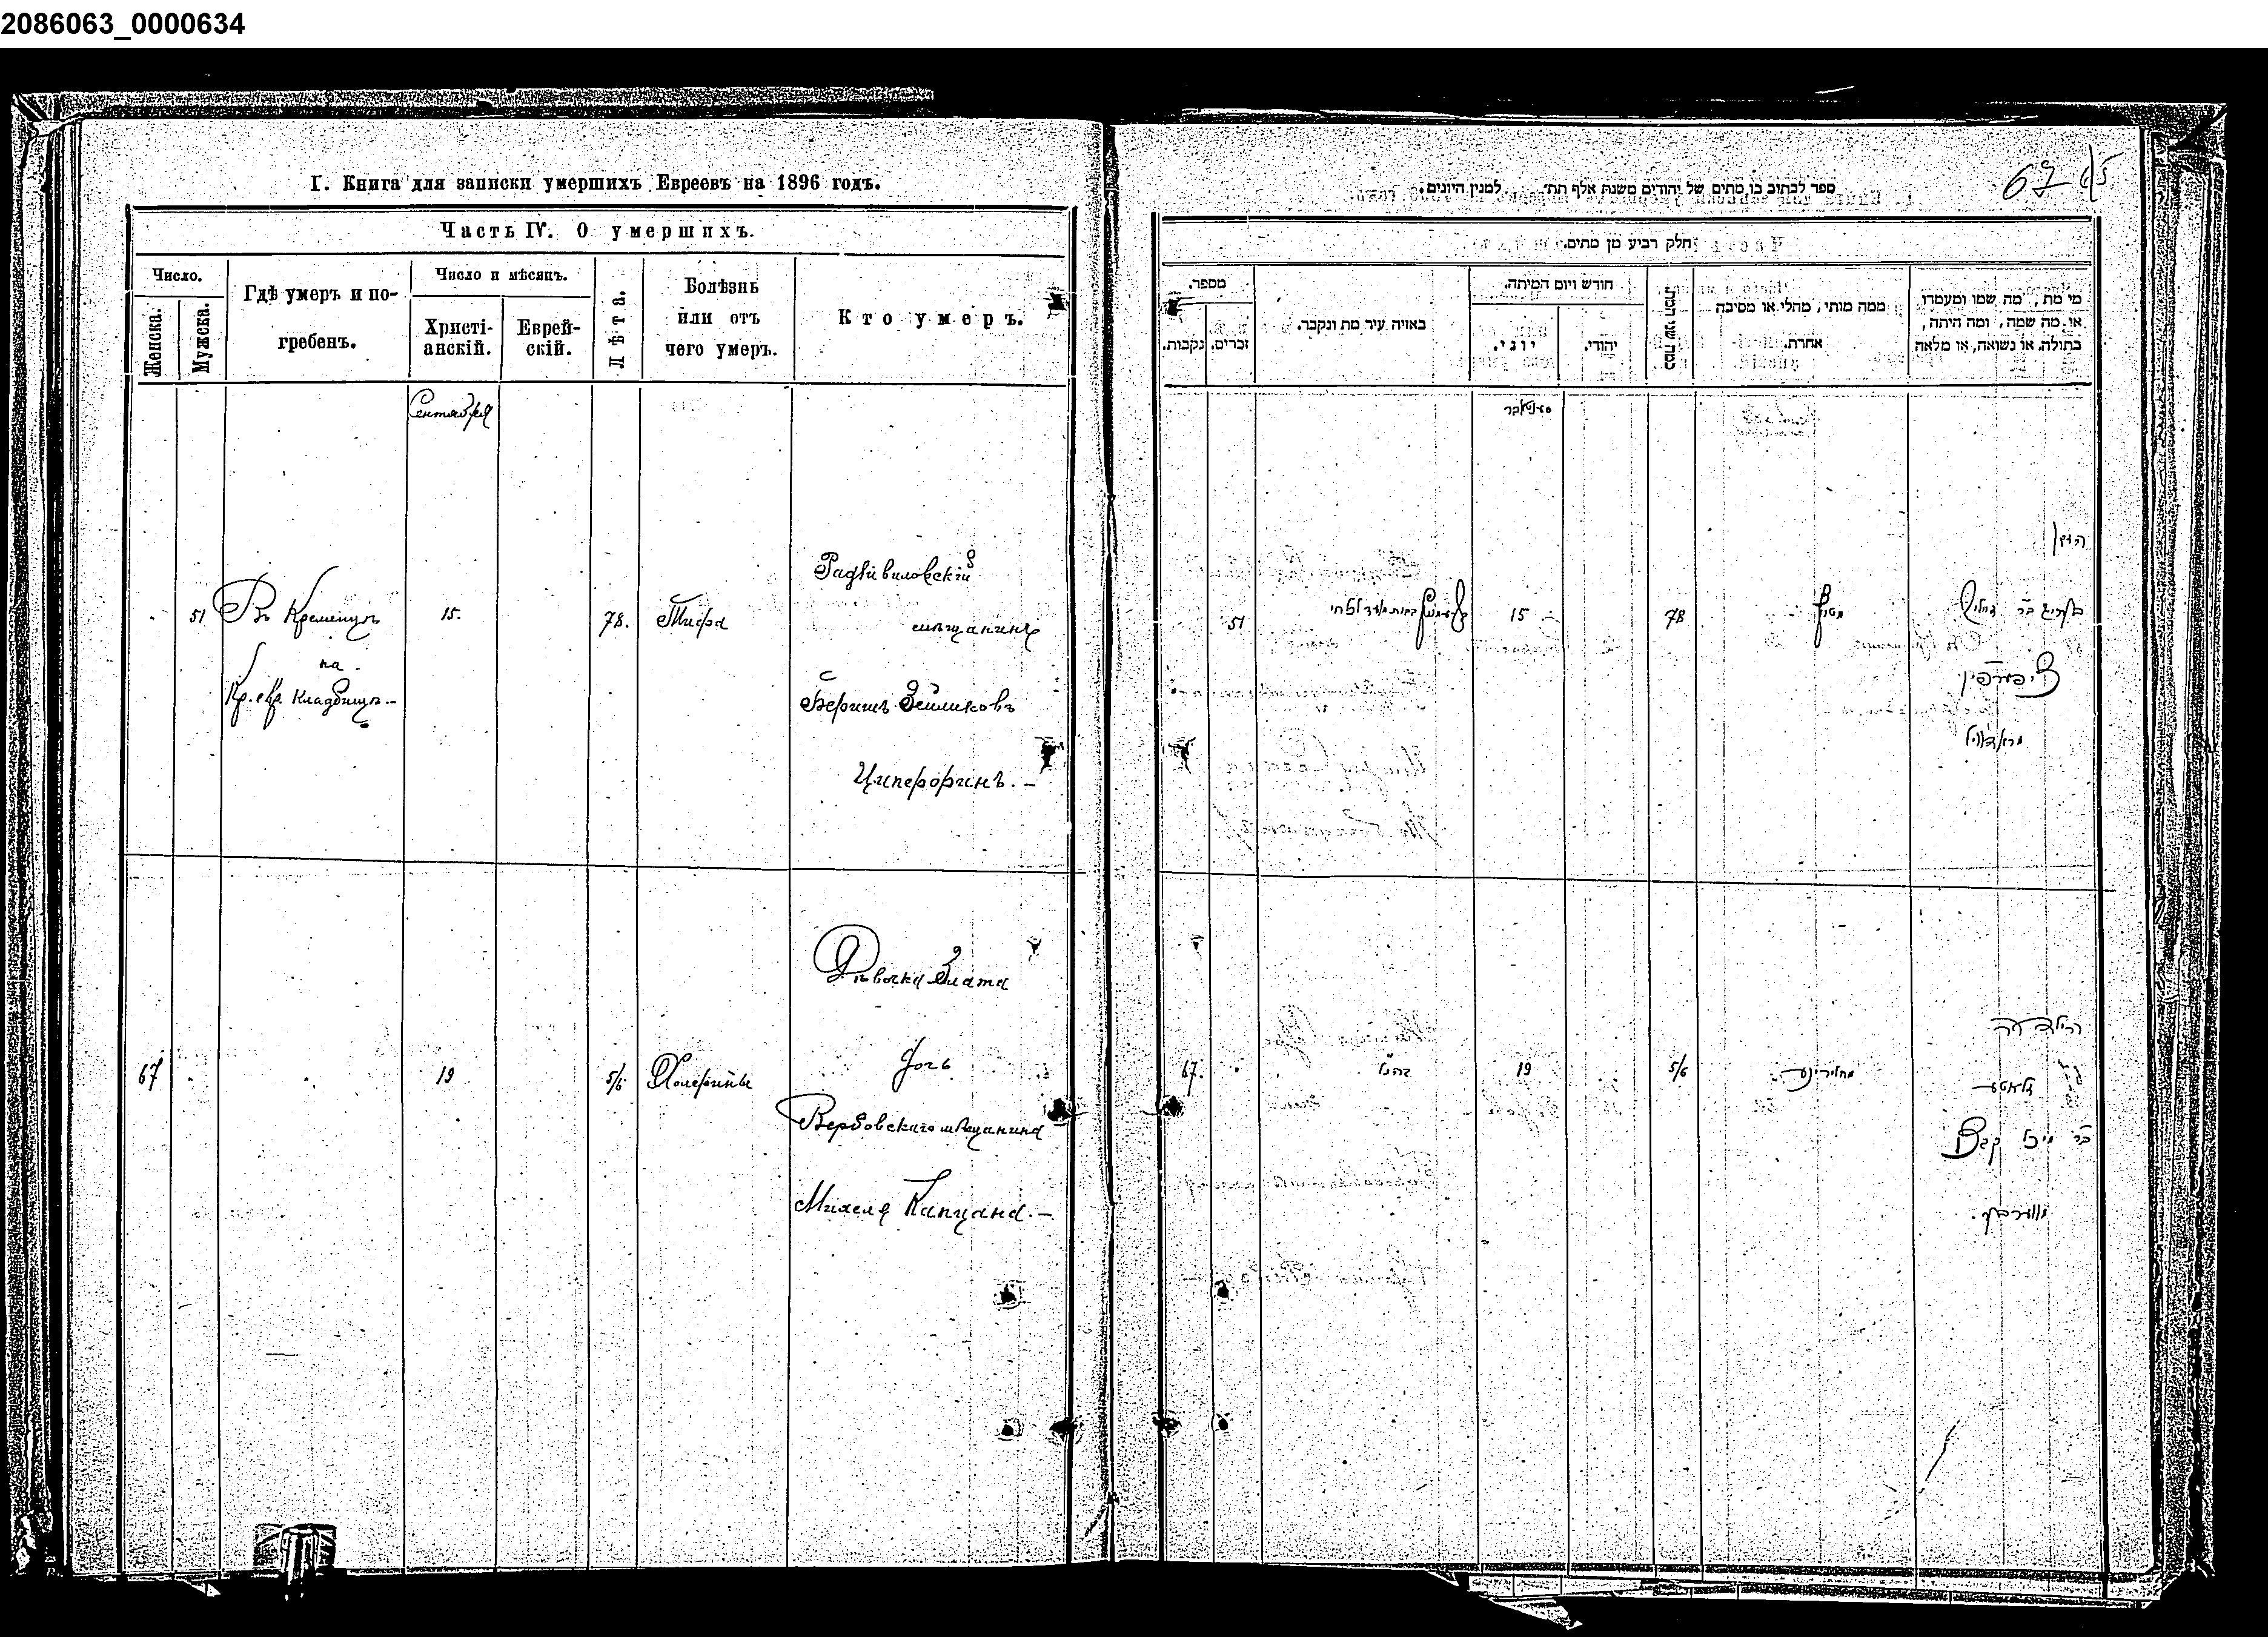 2086063_0000634
I. Книга для записки умершихъ Евреевъ на 1896 годъ.
Часть IV. О умершихъ.
Число.
Женска.
Мужска.
Гдѣ умеръ и по-
гребенъ.
Число и мѣсяцъ.
Христі-
анскій.
Еврей-
скій.
Лѣта.
Болѣзнь
или отъ
чего умеръ.
Кто умеръ.
Сентября
51
Въ Кременцѣ
на
Кр. евр. кладбищѣ.–
15.
78.
Тифа
Радзивиловскій
мѣщанинъ
Беришъ Зейликовъ
Ципероринъ.–
67
19
5/6
Холерины
Дѣвочка Злата
дочь
Вербовскаго мѣщанина
Михеля Капцана.–
67
ספר לכתוב בו מתים של יהודים משנת אלף תת״ למנין היונים.
חלק רביע מן מתים.
מספר.
נקבות.
זכרים.
באיזה עיר מת ונקבר.
חודש ויום המיתה.
יוני.
יהודי.
כמה שני חייה
ממה מותי, מחלי או מסיבה
אחרת.
מי מת, מה שמו ומעמדו,
או מה שמה, ומה היתה,
בתולה, או נשואה, או מלאה
סענטאבר
51
15
78
67.
כהנ״ל
19
5/6
הילדה
זלאטע